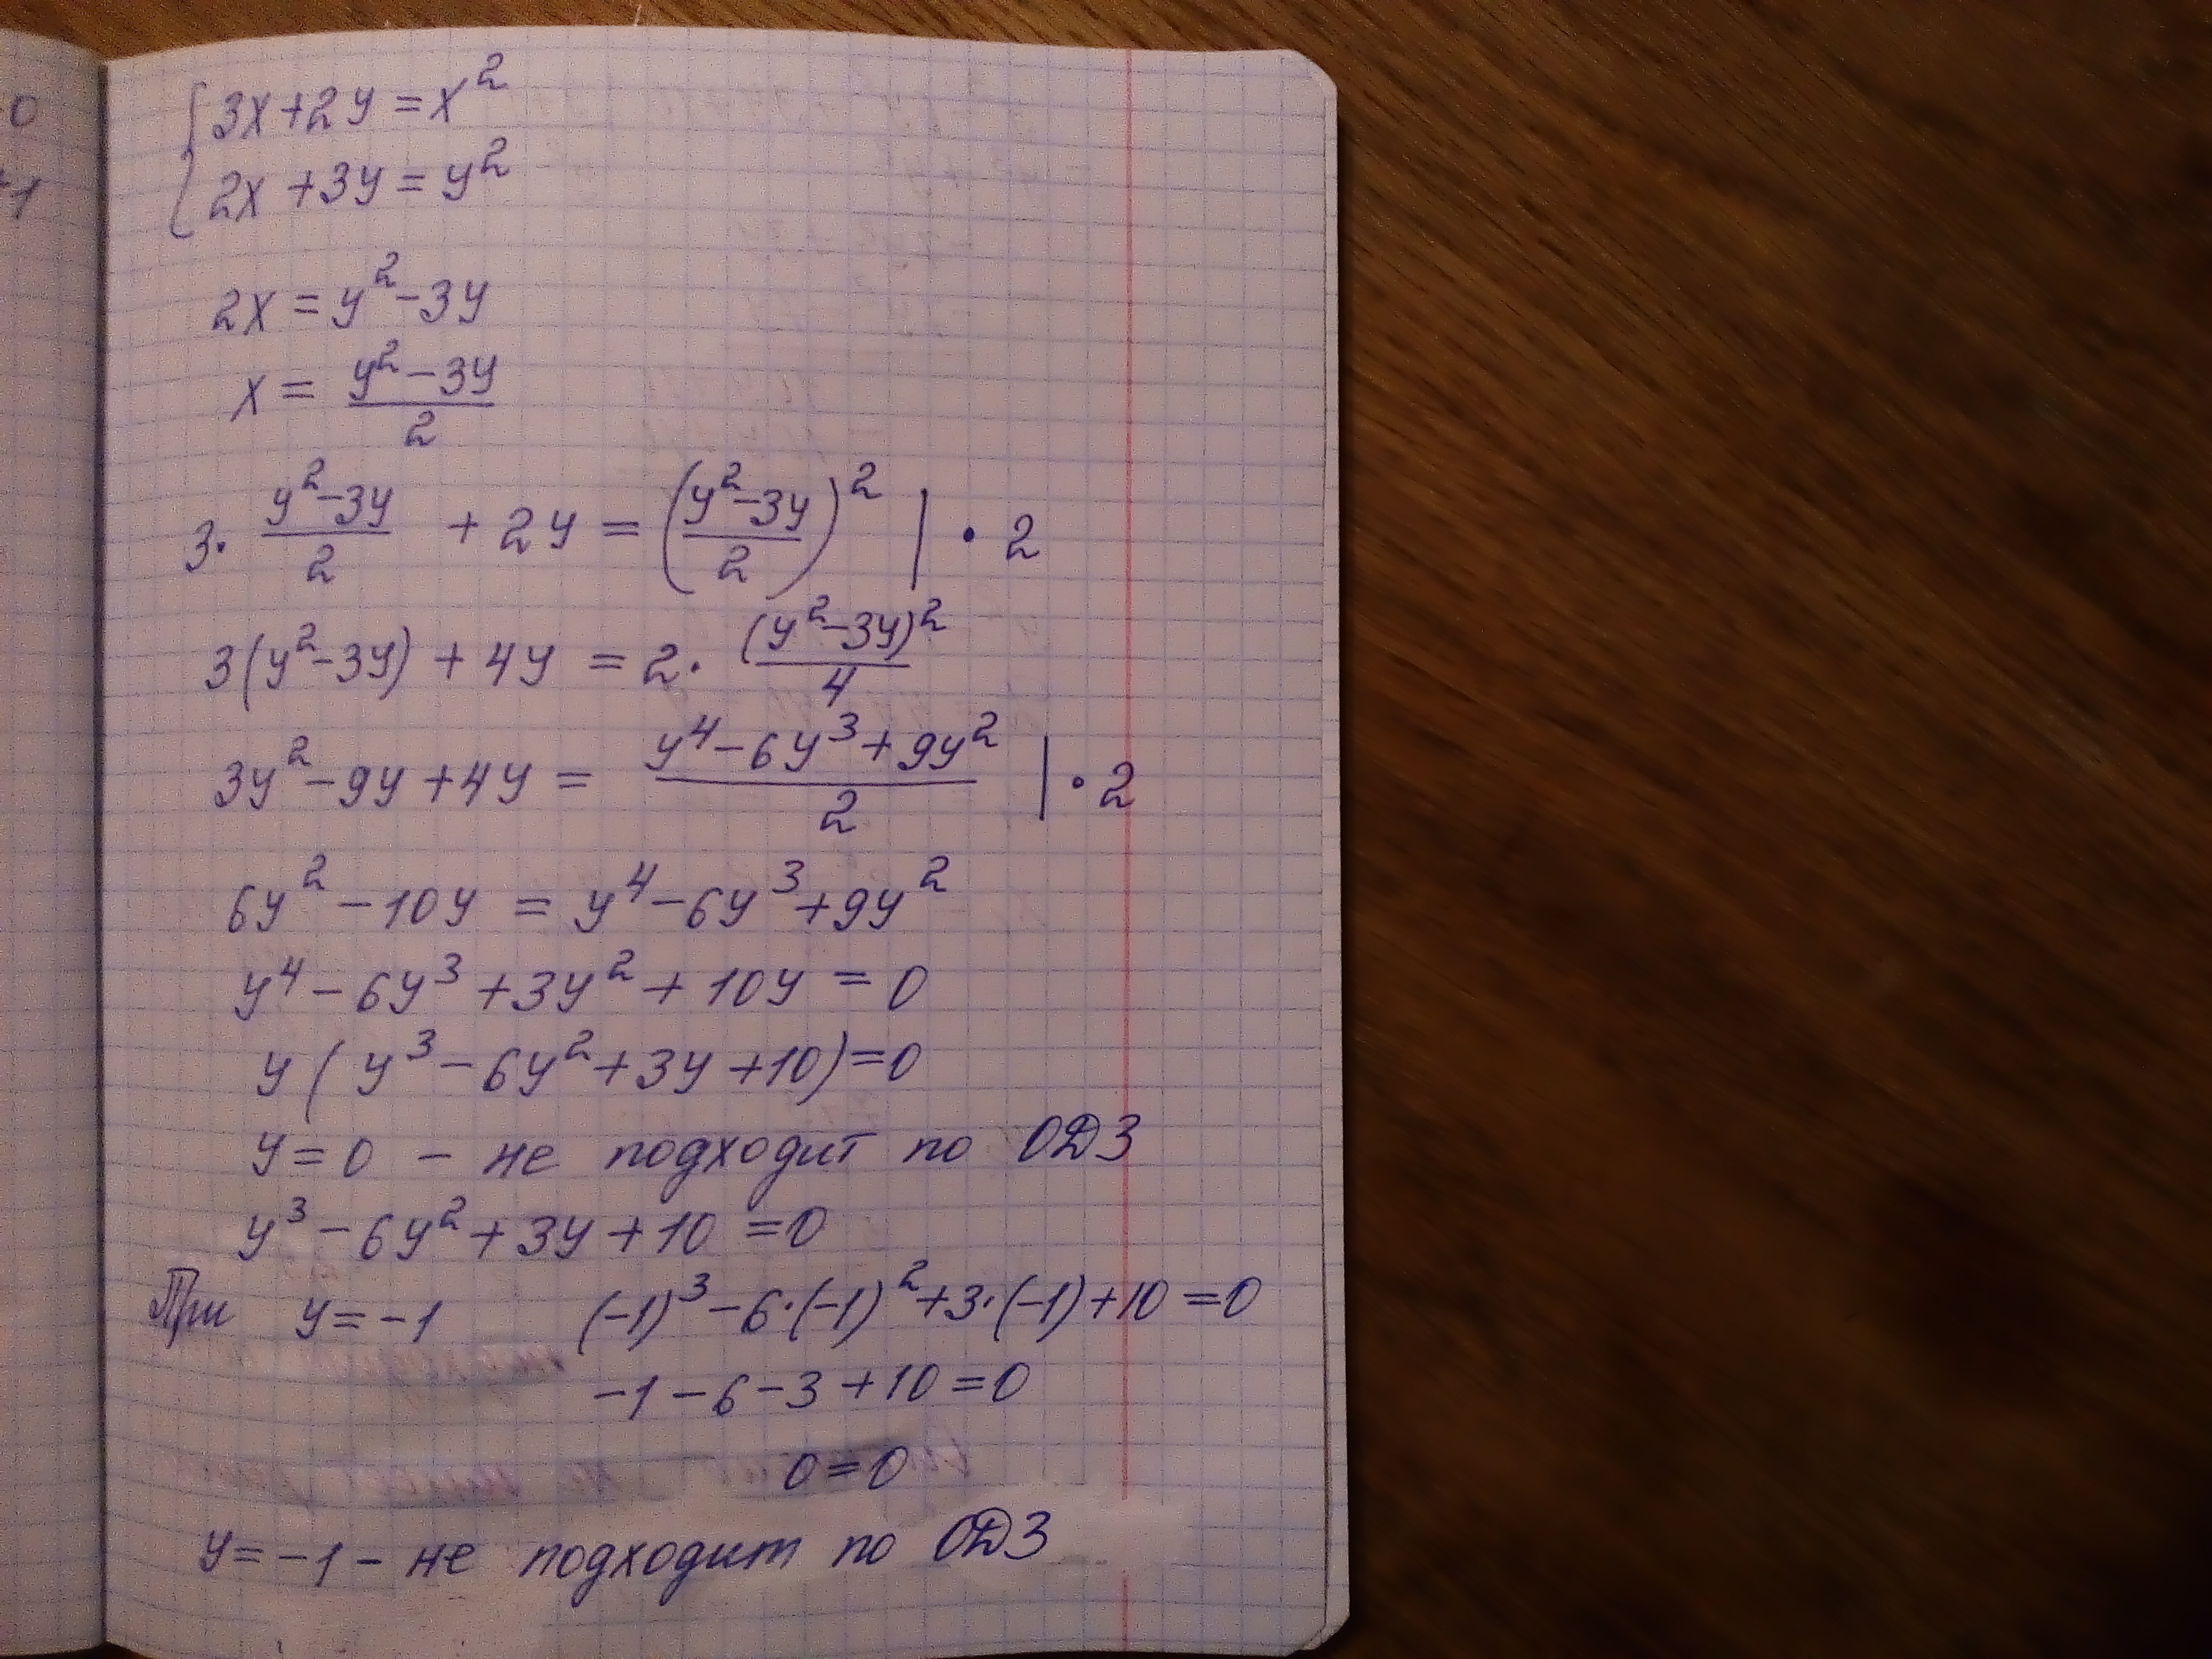 0
+1
{3x+2y=x²
{2x+3y=y²
2x=y²-3y
x= (y²-3y)/2
3· (y²-3y)/2 + 2y = ((y²-3y)/2)² | · 2
3(y²-3y) + 4y = 2· (y²-3y)²/4
3y²-9y+4y = (y⁴-6y³+9y²)/2 | · 2
6y²-10y = y⁴-6y³+9y²
y⁴-6y³+3y²+10y=0
y(y³-6y²+3y+10)=0
y=0 - не подходит по ОДЗ
y³-6y²+3y+10=0
При y=-1 (-1)³-6·(-1)²+3·(-1)+10=0
-1-6-3+10=0
0=0
y=-1- не подходит по ОДЗ